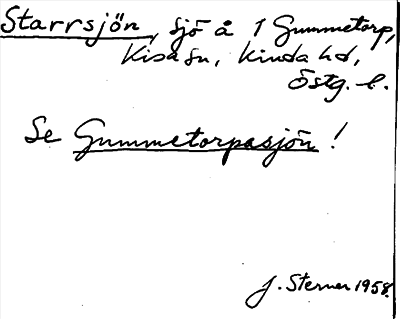 Starrsjön, sjö å 1 Gummetorp,
Kisa sn, Kinda hd,
Östg. l.
Se Gummetorpasjön !
J. Sterner 1958.